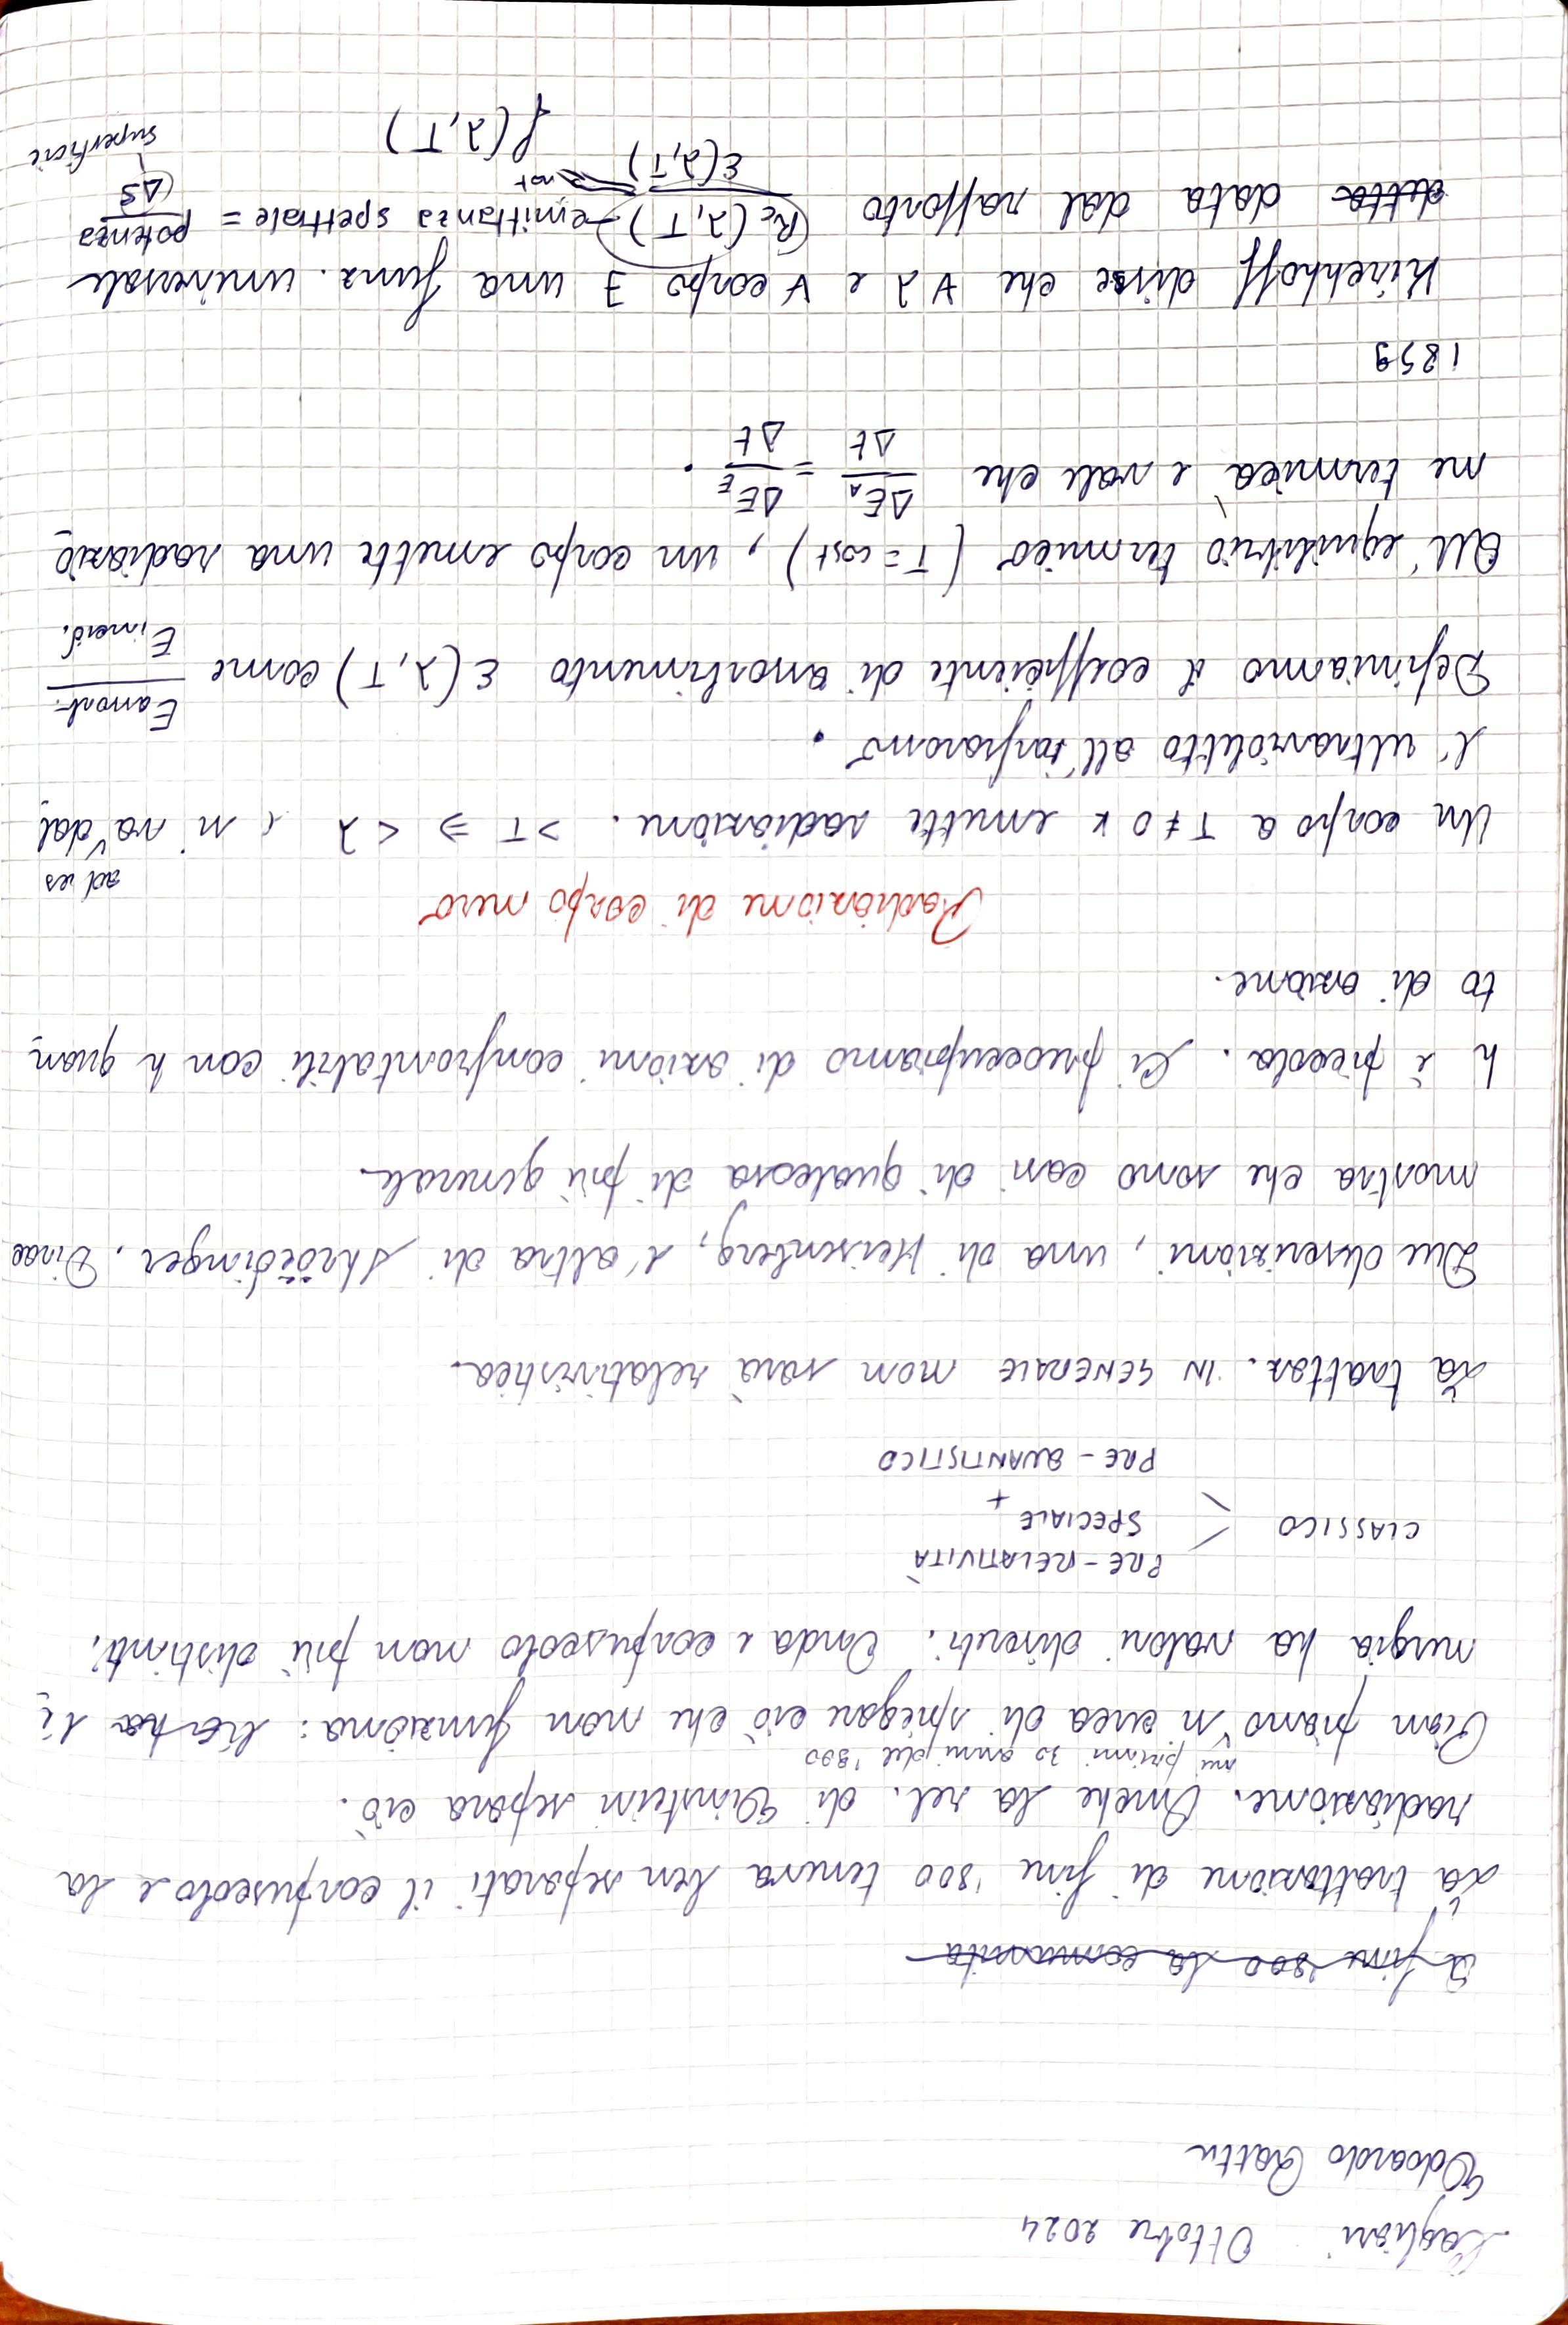 Cagliari Ottobre 2024
Edoardo Rattu
A fine '800 la comunita
La trattazione di fine '800 teneva ben separati il corpuscolo e la
radiazione. Anche la rel. di Einstein separa ciò.
nei primi 30 anni del '900
Pian piano si cerca di spiegare ciò che non funziona: l'E ha l'e
nergia ha valori discreti. Onda e corpuscolo non più distinti.
PRE-RELATIVITÀ
CLASSICO < SPECIALE
+
PRE-QUANTISTICO
La trattaz. IN GENERALE non sarà relativistica.
Due descrizioni, una di Heisenberg, l'altra di Shröedinger. Dirac
mostra che sono casi di qualcosa di più generale.
h è piccola. Ci preoccupiamo di azioni confrontabili con h quan
to di azione.
Radiazione di corpo nero
ad es
Un corpo a T ≠ 0 K emette radiazione. >T ⇒ <λ e si va dal
l'ultravioletto all'infrarosso.
Definiamo il coefficiente di assorbimento ε(λ,T) come E assorb. / E incid.
All'equilibrio termico (T=cost), un corpo emette una radiazio
ne termica e vale che ΔE_A/Δt = ΔE_E/Δt.
1859
Kirchhoff disse che ∀ λ e ∀ corpo ∃ una funz. universale
detta data dal rapporto R_c(λ,T) / ε(λ,T) emittanza spettrale = potenza / ΔS
not
f(λ,T) superficie